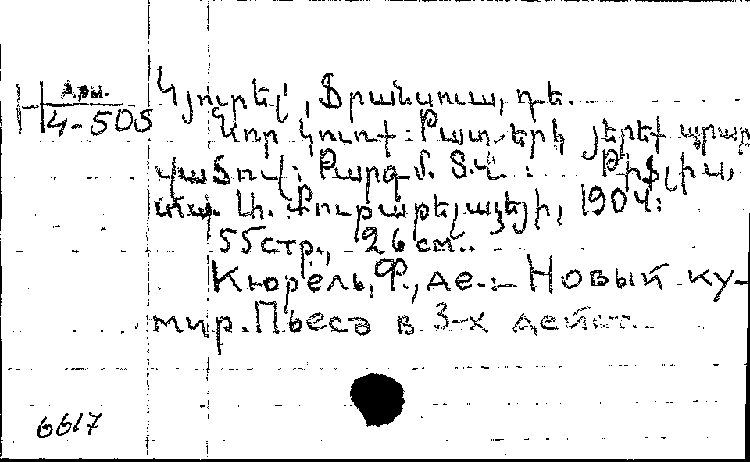 Арм.
Н 4-505
Կյուրել, Ֆրանսուա, դե.
Նոր կուռք: Թատերկ յերեք արար-
վածով: Թարգմ. Տ.Վ.: Թիֆլիս,
տպ. Մ. 1904:
55стр., 26см..
Кюрель, Ф., де.:- Новый ку-
мир. Пьеса в 3-х дейст.
6617